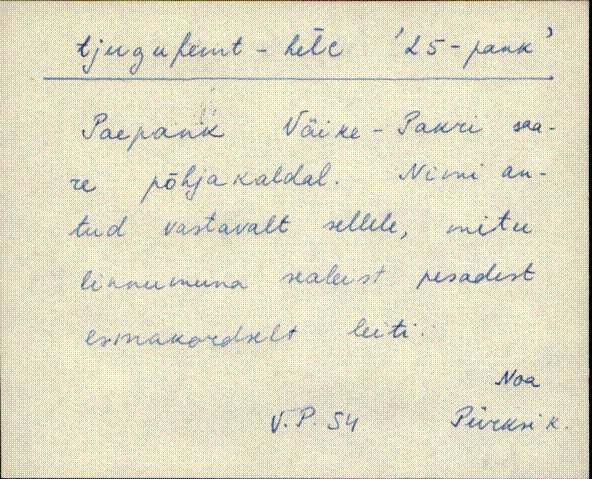 tjugufemt-hele '25-pank'
Paepank Väike-Pakri saa-
re põhjakaldal. Nimi an-
tud vastavalt sellele, mitu
linnumuna sealeist pesadest
esmakordselt leiti.
Noa
V.P. 54 Pürksi k.